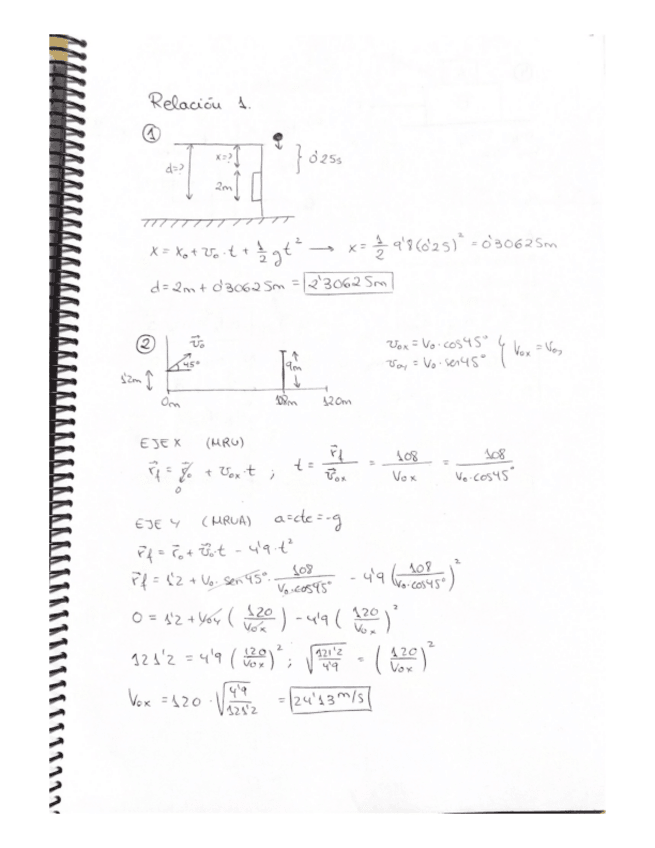 Relación 1.
①
d=?
x=?
2m
} 0'25s
x = x₀ + v₀·t + 1/2 gt² → x = 1/2 9'8(0'25)² = 0'30625m
d = 2m + 0'30625m = 2'30625m
②
v⃗₀
45°
1'2m
9m
0m 108m 120m
v₀x = V₀·cos45°
v₀y = V₀·sen45°
V₀x = V₀y
EJE X (MRU)
r⃗f = r⃗₀ + v₀x·t ; t = r⃗f/v⃗₀x = 108/V₀x = 108/V₀·cos45°
0
EJE Y (MRUA) a=cte=-g
r⃗f = r⃗₀ + v⃗₀·t - 4'9·t²
r⃗f = 1'2 + V₀·sen45°· 108/V₀·cos45° - 4'9 (108/V₀·cos45°)²
0 = 1'2 + V₀y (120/V₀x) - 4'9 (120/V₀x)²
121'2 = 4'9 (120/V₀x)² ; √(121'2/4'9) = (120/V₀x)²
V₀x = 120 · √(4'9/121'2) = 24'13 m/s